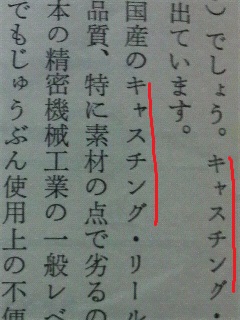 ）でしょう。キャスチング・
出ています。
国産のキャスチング・リール
品質、特に素材の点で劣るの
本の精密機械工業の一般レベ
でもじゅうぶん使用上の不便